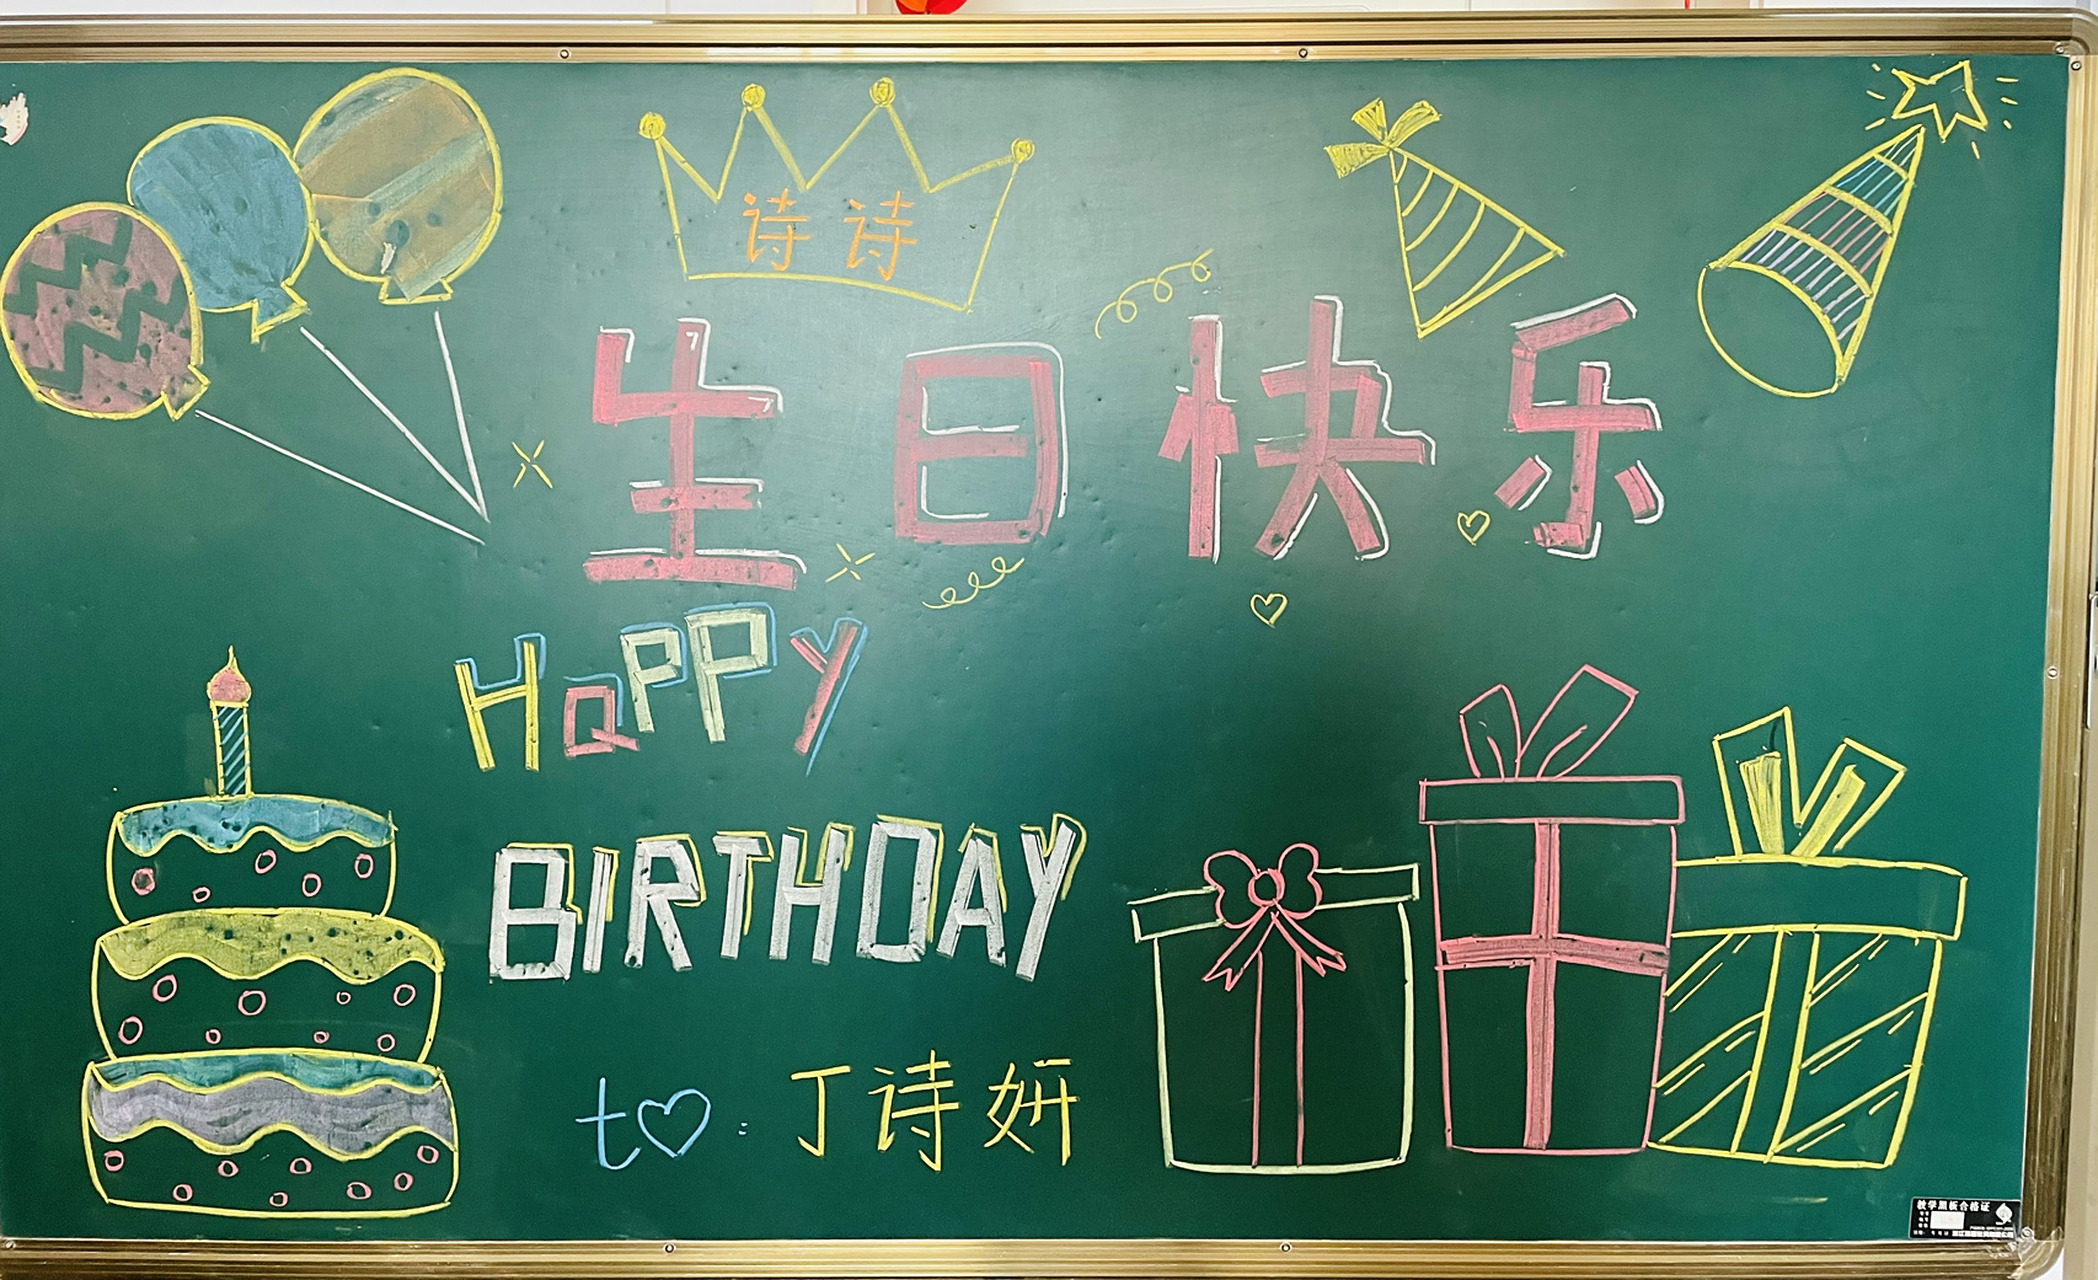 诗诗
生日快乐
HaPPY
BIRTHDAY
to♡:丁诗妍
教学黑板合格证